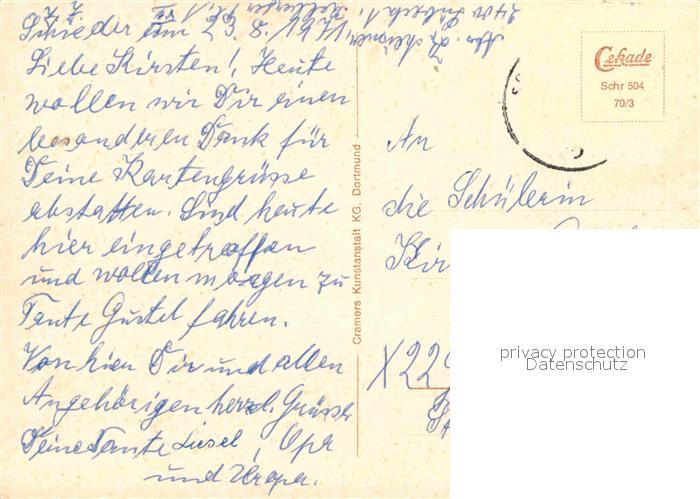 z. Z.
Schieder am 23. 8. 1971
Liebe Kirsten! Heute
wollen wir Dir einen
besonderen Dank für
Deine Kartengrüsse
abstatten. Sind heute
hier eingetroffen
und wollen morgen zu
Tante Gustel fahren.
Von hier Dir und allen
Angehörigen herzl. Grüsse
Deine Tante Liesel, Opa
und Uropa.
Cramers Kunstanstalt KG. Dortmund
Cekade
Schr 504
70/3
An
die Schülerin
Kir
X 229
privacy protection
Datenschutz